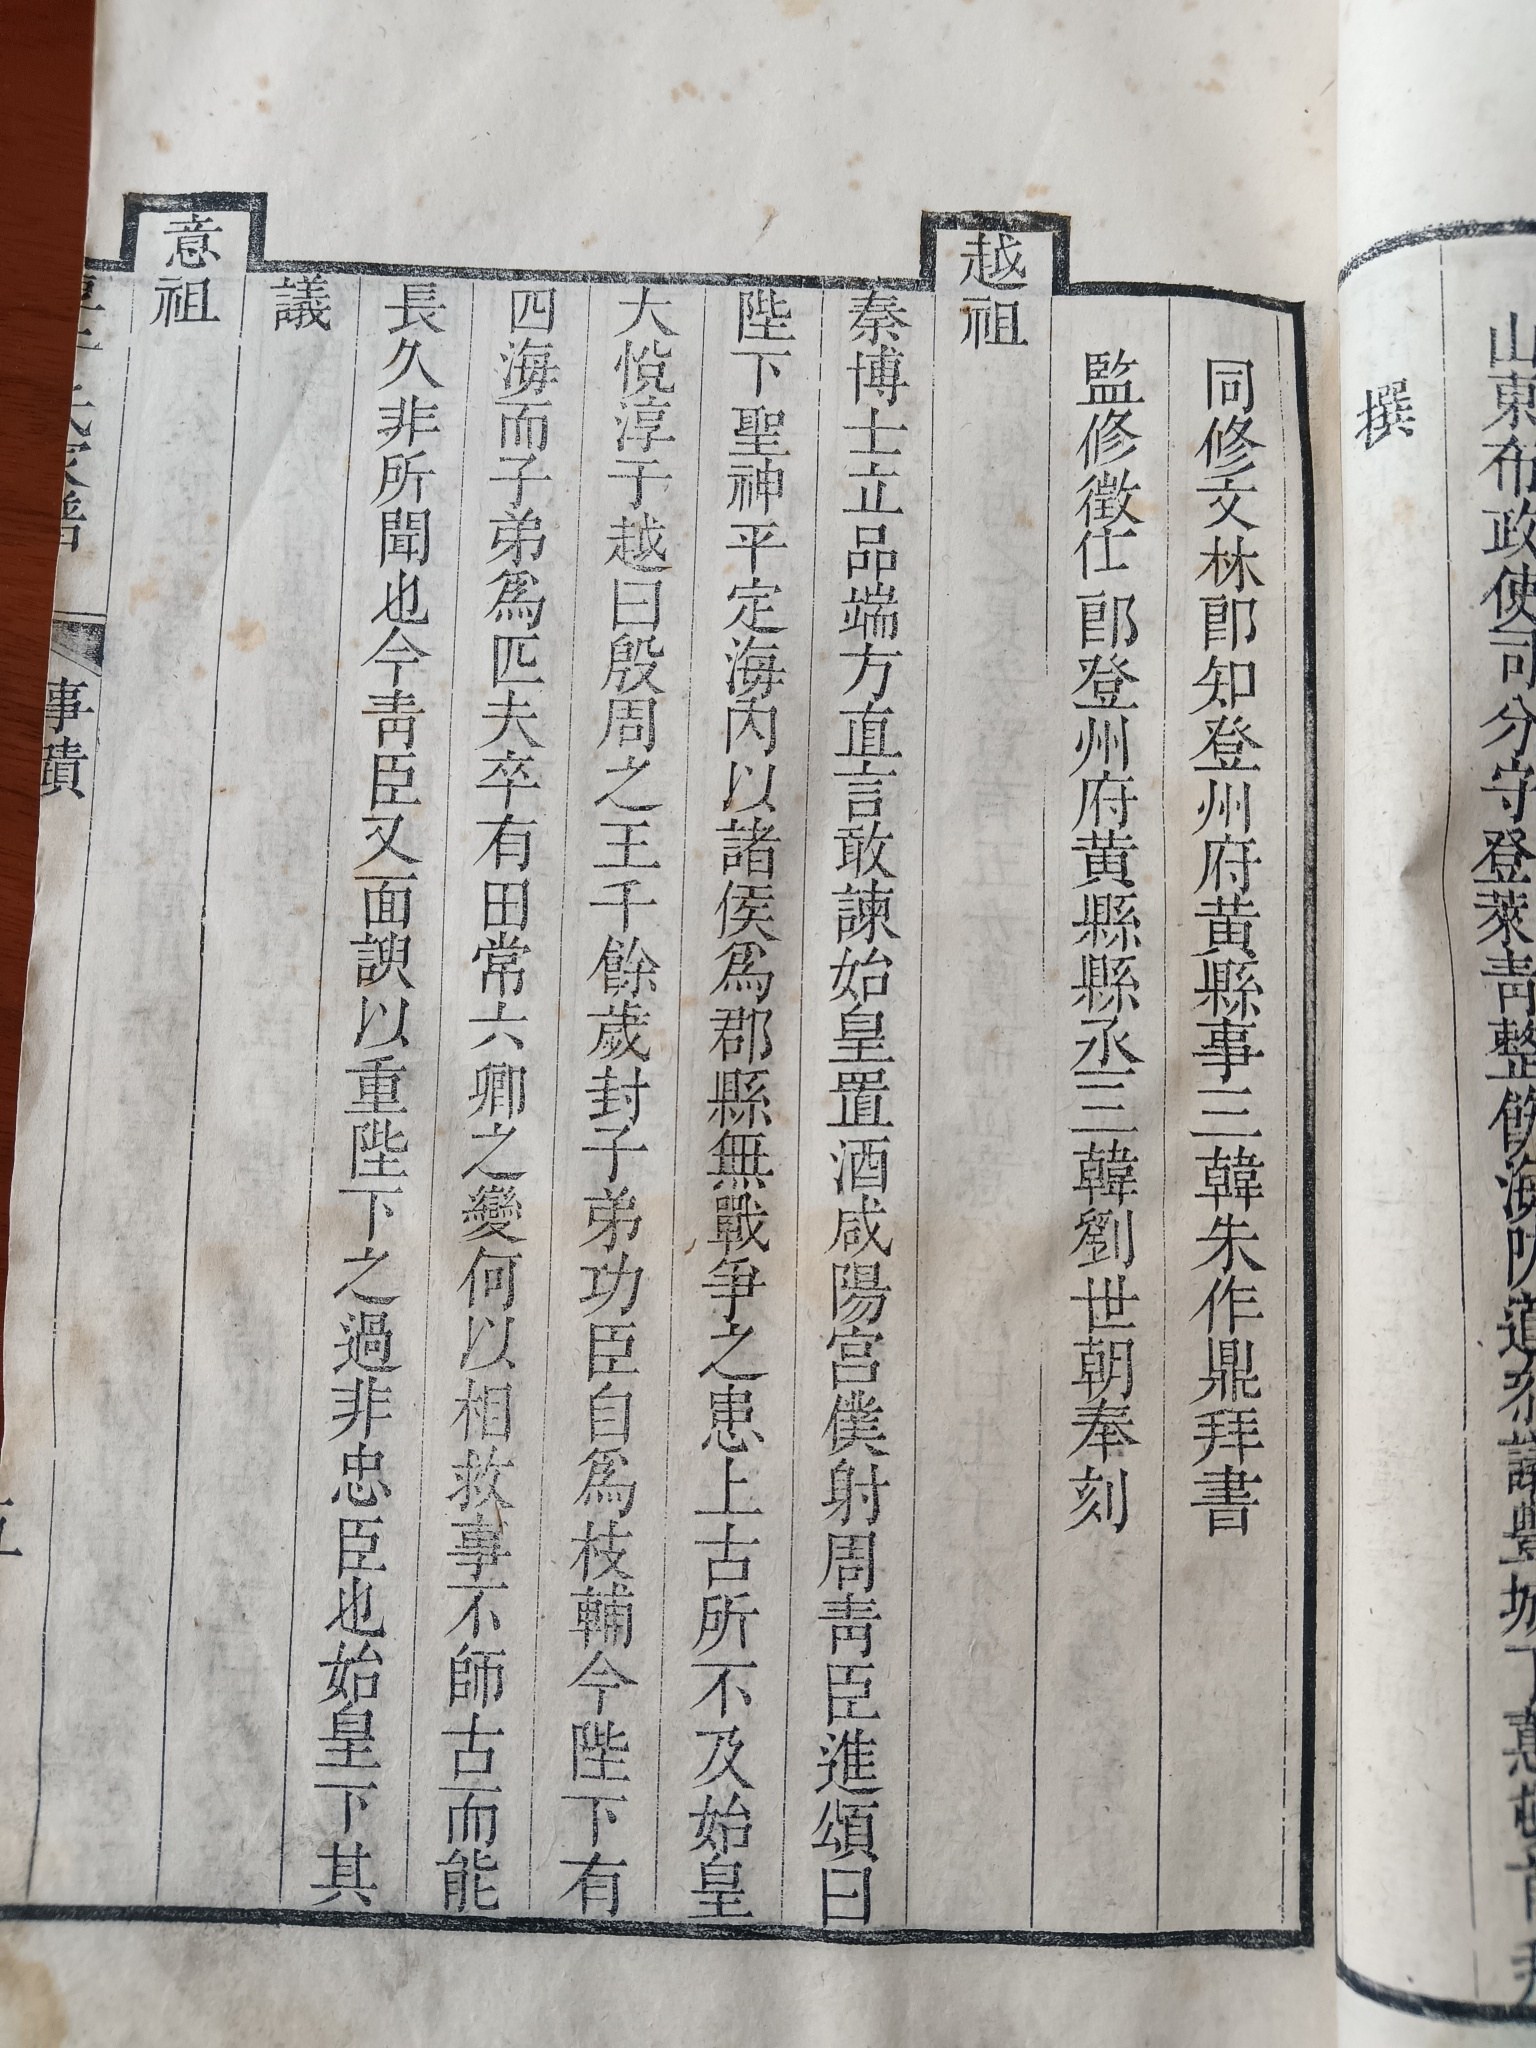 山東布政使司分守登萊青整飭海防道叅議豐城丁蕙頓首拜
撰
同修文林郎知登州府黃縣事三韓朱作鼎拜書
監修徵仕郎登州府黃縣縣丞三韓劉世朝奉刻
越祖
秦博士立品端方直言敢諫始皇置酒咸陽宮僕射周青臣進頌曰
陛下聖神平定海內以諸侯爲郡縣無戰爭之患上古所不及始皇
大悅淳于越曰殷周之王千餘歲封子弟功臣自爲枝輔今陛下有
四海而子弟爲匹夫卒有田常六卿之變何以相救事不師古而能
長久非所聞也今青臣又面諛以重陛下之過非忠臣也始皇下其
議
意祖
事蹟